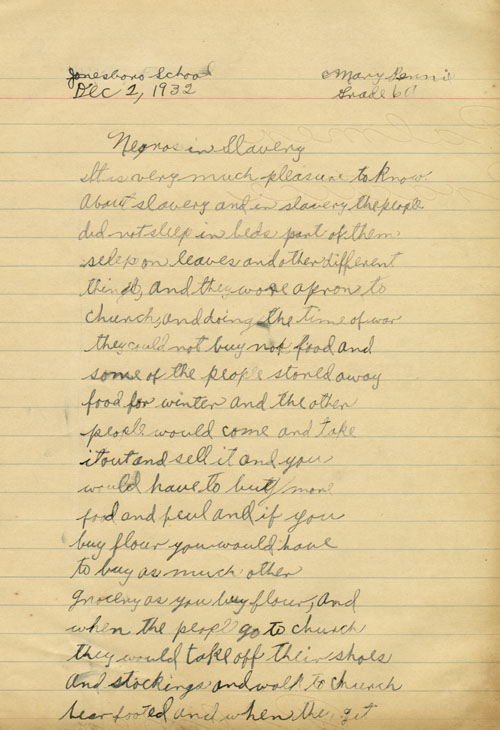 Jonesboro School
Dec 2, 1932
Mary
Grade 6
Negros in Slavery
It is very much pleasure to know
About slavery and in slavery the people
did not sleep in beds part of them
selep on leaves and other different
things, and they wore apron to
church, and doing the time of war
they could not buy not food and
some of the people stored away
food for winter and the other
people would come and take
it out and sell it and you
would have to buy more
food and feul and if you
buy flour you would have
to buy as much other
grocery as you buy flour, and
when the people go to church
they would take off their shoes
and stockings and walk to church
bear footed and when they get